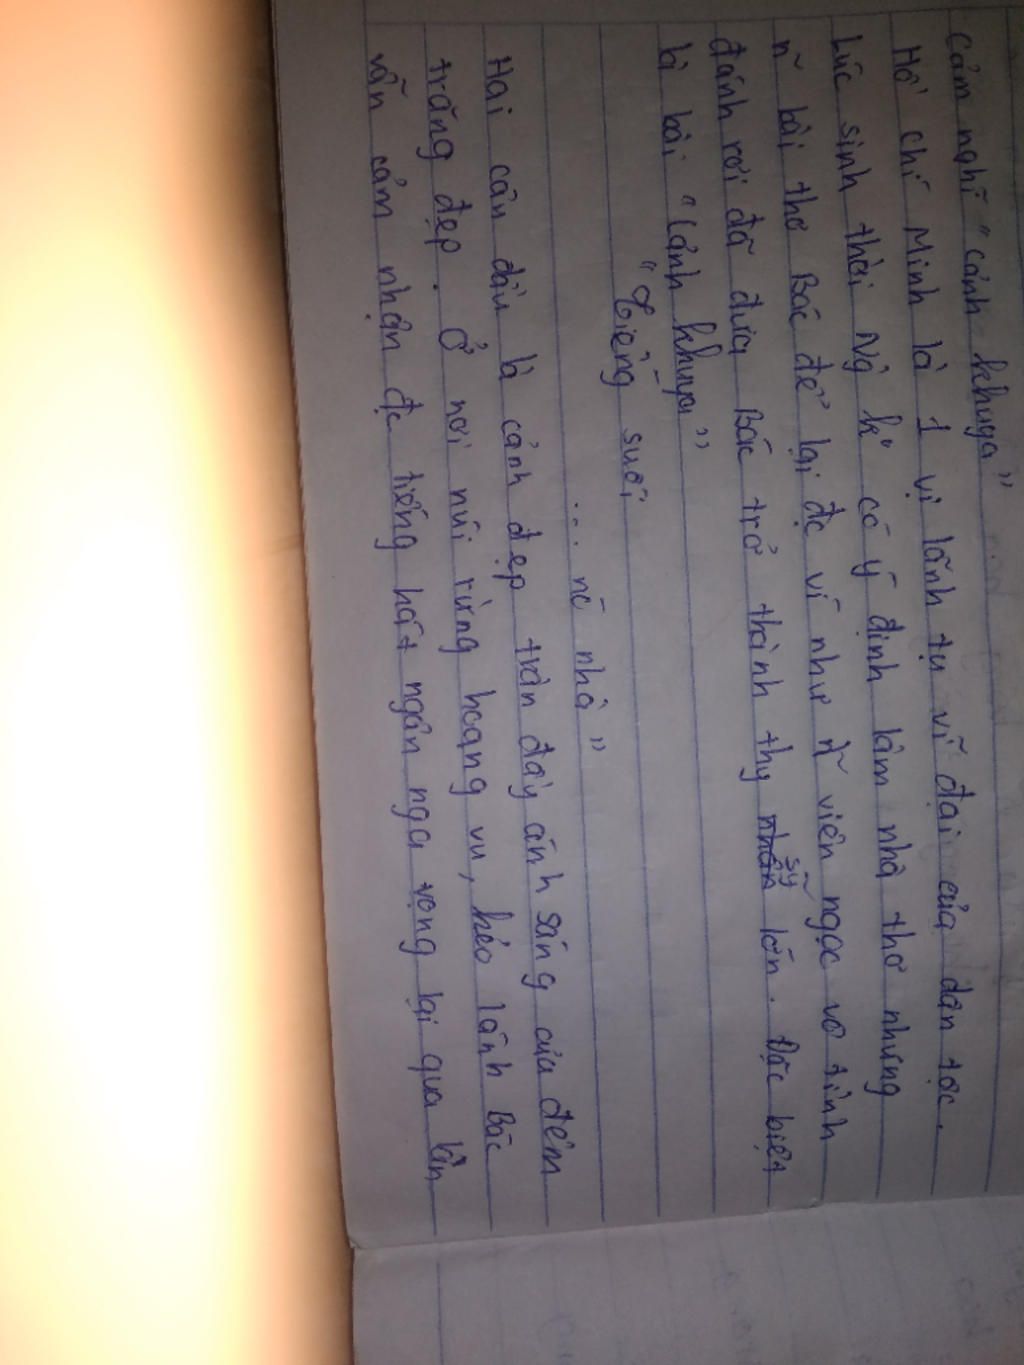 Cảm nghĩ "cảnh khuya"
Hồ Chí Minh là 1 vị lãnh tụ vĩ đại của dân tộc.
Lúc sinh thời Ng k° có ý định làm nhà thơ nhưng
~ bài thơ Bác để lại đc ví như ~ viên ngọc vô tình
đánh rơi đã đưa Bác trở thành thy sỹ lớn. Đặc biệt
là bài "Cảnh khuya"
"Tiếng suối
... nc nhà"
Hai câu đầu là cảnh đẹp tràn đầy ánh sáng của đêm
trăng đẹp. Ở nơi núi rừng hoang vu, héo lánh Bác
vẫn cảm nhận đc tiếng hát ngân nga vọng lại qua